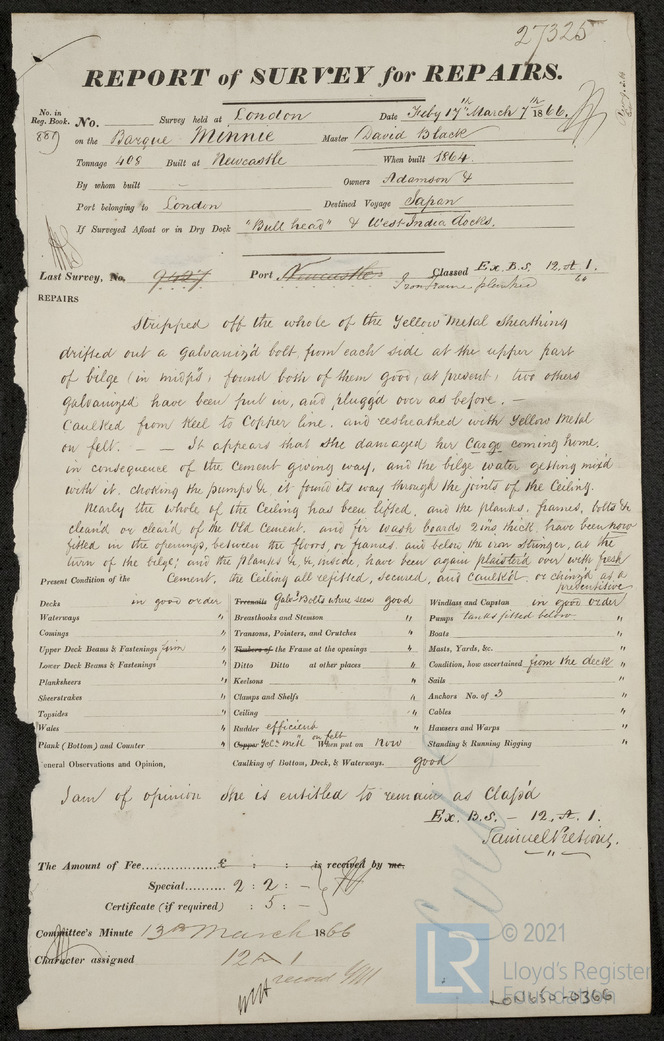 27325
REPORT of SURVEY for REPAIRS.
No. in Reg. Book. No. Survey held at London Date Feby 17th March 7th 1866
889 on the Barque Minnie Master David Black
Tonnage 408 Built at Newcastle When built 1864.
By whom built - Owners Adamson &
Port belonging to London Destined Voyage Japan
If Surveyed Afloat or in Dry Dock "Bull head" & West India docks.
Last Survey, No. 9427 Port Newcastle Classed Ex. B.S. 12. A 1.
Iron frame planked 66
REPAIRS
Stripped off the whole of the Yellow Metal Sheathing
drifted out a galvaniz'd bolt, from each side at the upper part
of bilge (in midp's) found both of them good, at present, two others
galvanized have been put in, and plugg'd over as before. -
Caulked from Keel to Copper line. and resheathed with Yellow Metal
on felt. - - It appears that she damaged her Cargo coming home.
in consequence of the Cement giving way, and the bilge water getting mix'd
with it. choking the pumps &c. it found its way through the joints of the Ceiling.
Nearly the whole of the Ceiling has been lifted, and the planks, frames, bolts &c
clean'd or clear'd of the Old Cement. and fir wash boards 2 ins thick, have been now
fitted in the openings, between the floors, or frames. and below the iron Stringer, at the
turn of the bilge; and the planks &c &c inside, have been again plaister'd over with fresh
Cement, the Ceiling all refitted, secured, and caulk'd. or chinz'd as a
preventitive
Present Condition of the
Decks in good order Treenails Galvd Bolts where seen good Windlass and Capstan in good order
Waterways " Breasthooks and Stemson " Pumps tanks fitted below
Comings " Transoms, Pointers, and Crutches " Boats "
Upper Deck Beams & Fastenings firm " Timbers of the Frame at the openings " Masts, Yards, &c. "
Lower Deck Beams & Fastenings " Ditto Ditto at other places " Condition, how ascertained from the deck "
Planksheers " Keelsons " Sails "
Sheerstrakes " Clamps and Shelfs " Anchors No. of 3 "
Topsides " Ceiling " Cables "
Wales " Rudder efficient " Hawsers and Warps "
Plank (Bottom) and Counter " Copper Yel. metl on felt When put on Now Standing & Running Rigging "
General Observations and Opinion, Caulking of Bottom, Deck, & Waterways. good
I am of opinion She is entitled to remain as Class'd
Ex. B.S. - 12. A. 1.
The Amount of Fee £ : : is received by me.
Special 2 : 2 : -
Certificate (if required) : 5 : -
Committee's Minute 13th March 1866
Character assigned 12 A 1
record
LR © 2021
Lloyd's Register
Foundation
LON650-0366